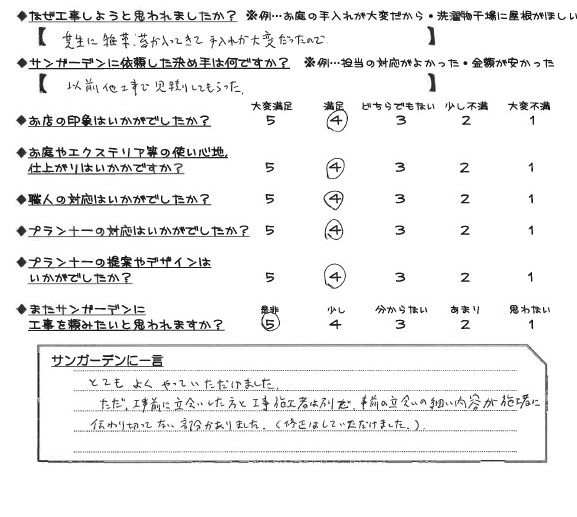 ◆なぜ工事しようと思われましたか? ※例…お庭の手入れが大変だから・洗濯物干場に屋根がほしい
【 芝生に雑草、苔が入ってきて手入れが大変だったので 】
◆サンガーデンに依頼した決め手は何ですか? ※例…担当の対応がよかった・金額が安かった
【 以前他工事で見積りしてもらった。 】
大変満足 満足 どちらでもない 少し不満 大変不満
◆お店の印象はいかがでしたか? 5 4 3 2 1
◆お庭やエクステリア等の使い心地、
仕上がりはいかかですか? 5 4 3 2 1
◆職人の対応はいかがでしたか? 5 4 3 2 1
◆プランナーの対応はいかがでしたか? 5 4 3 2 1
◆プランナーの提案やデザインは
いかがでしたか? 5 4 3 2 1
◆またサンガーデンに 是非 少し 分からない あまり 思わない
工事を頼みたいと思われますか? 5 4 3 2 1
サンガーデンに一言
とてもよくやっていただけました。
ただ、工事前に立会いした方と工事施工者は別で、事前の立会いの細い内容が施工者に
伝わり切ってない部分がありました。(修正はしていただけました。)